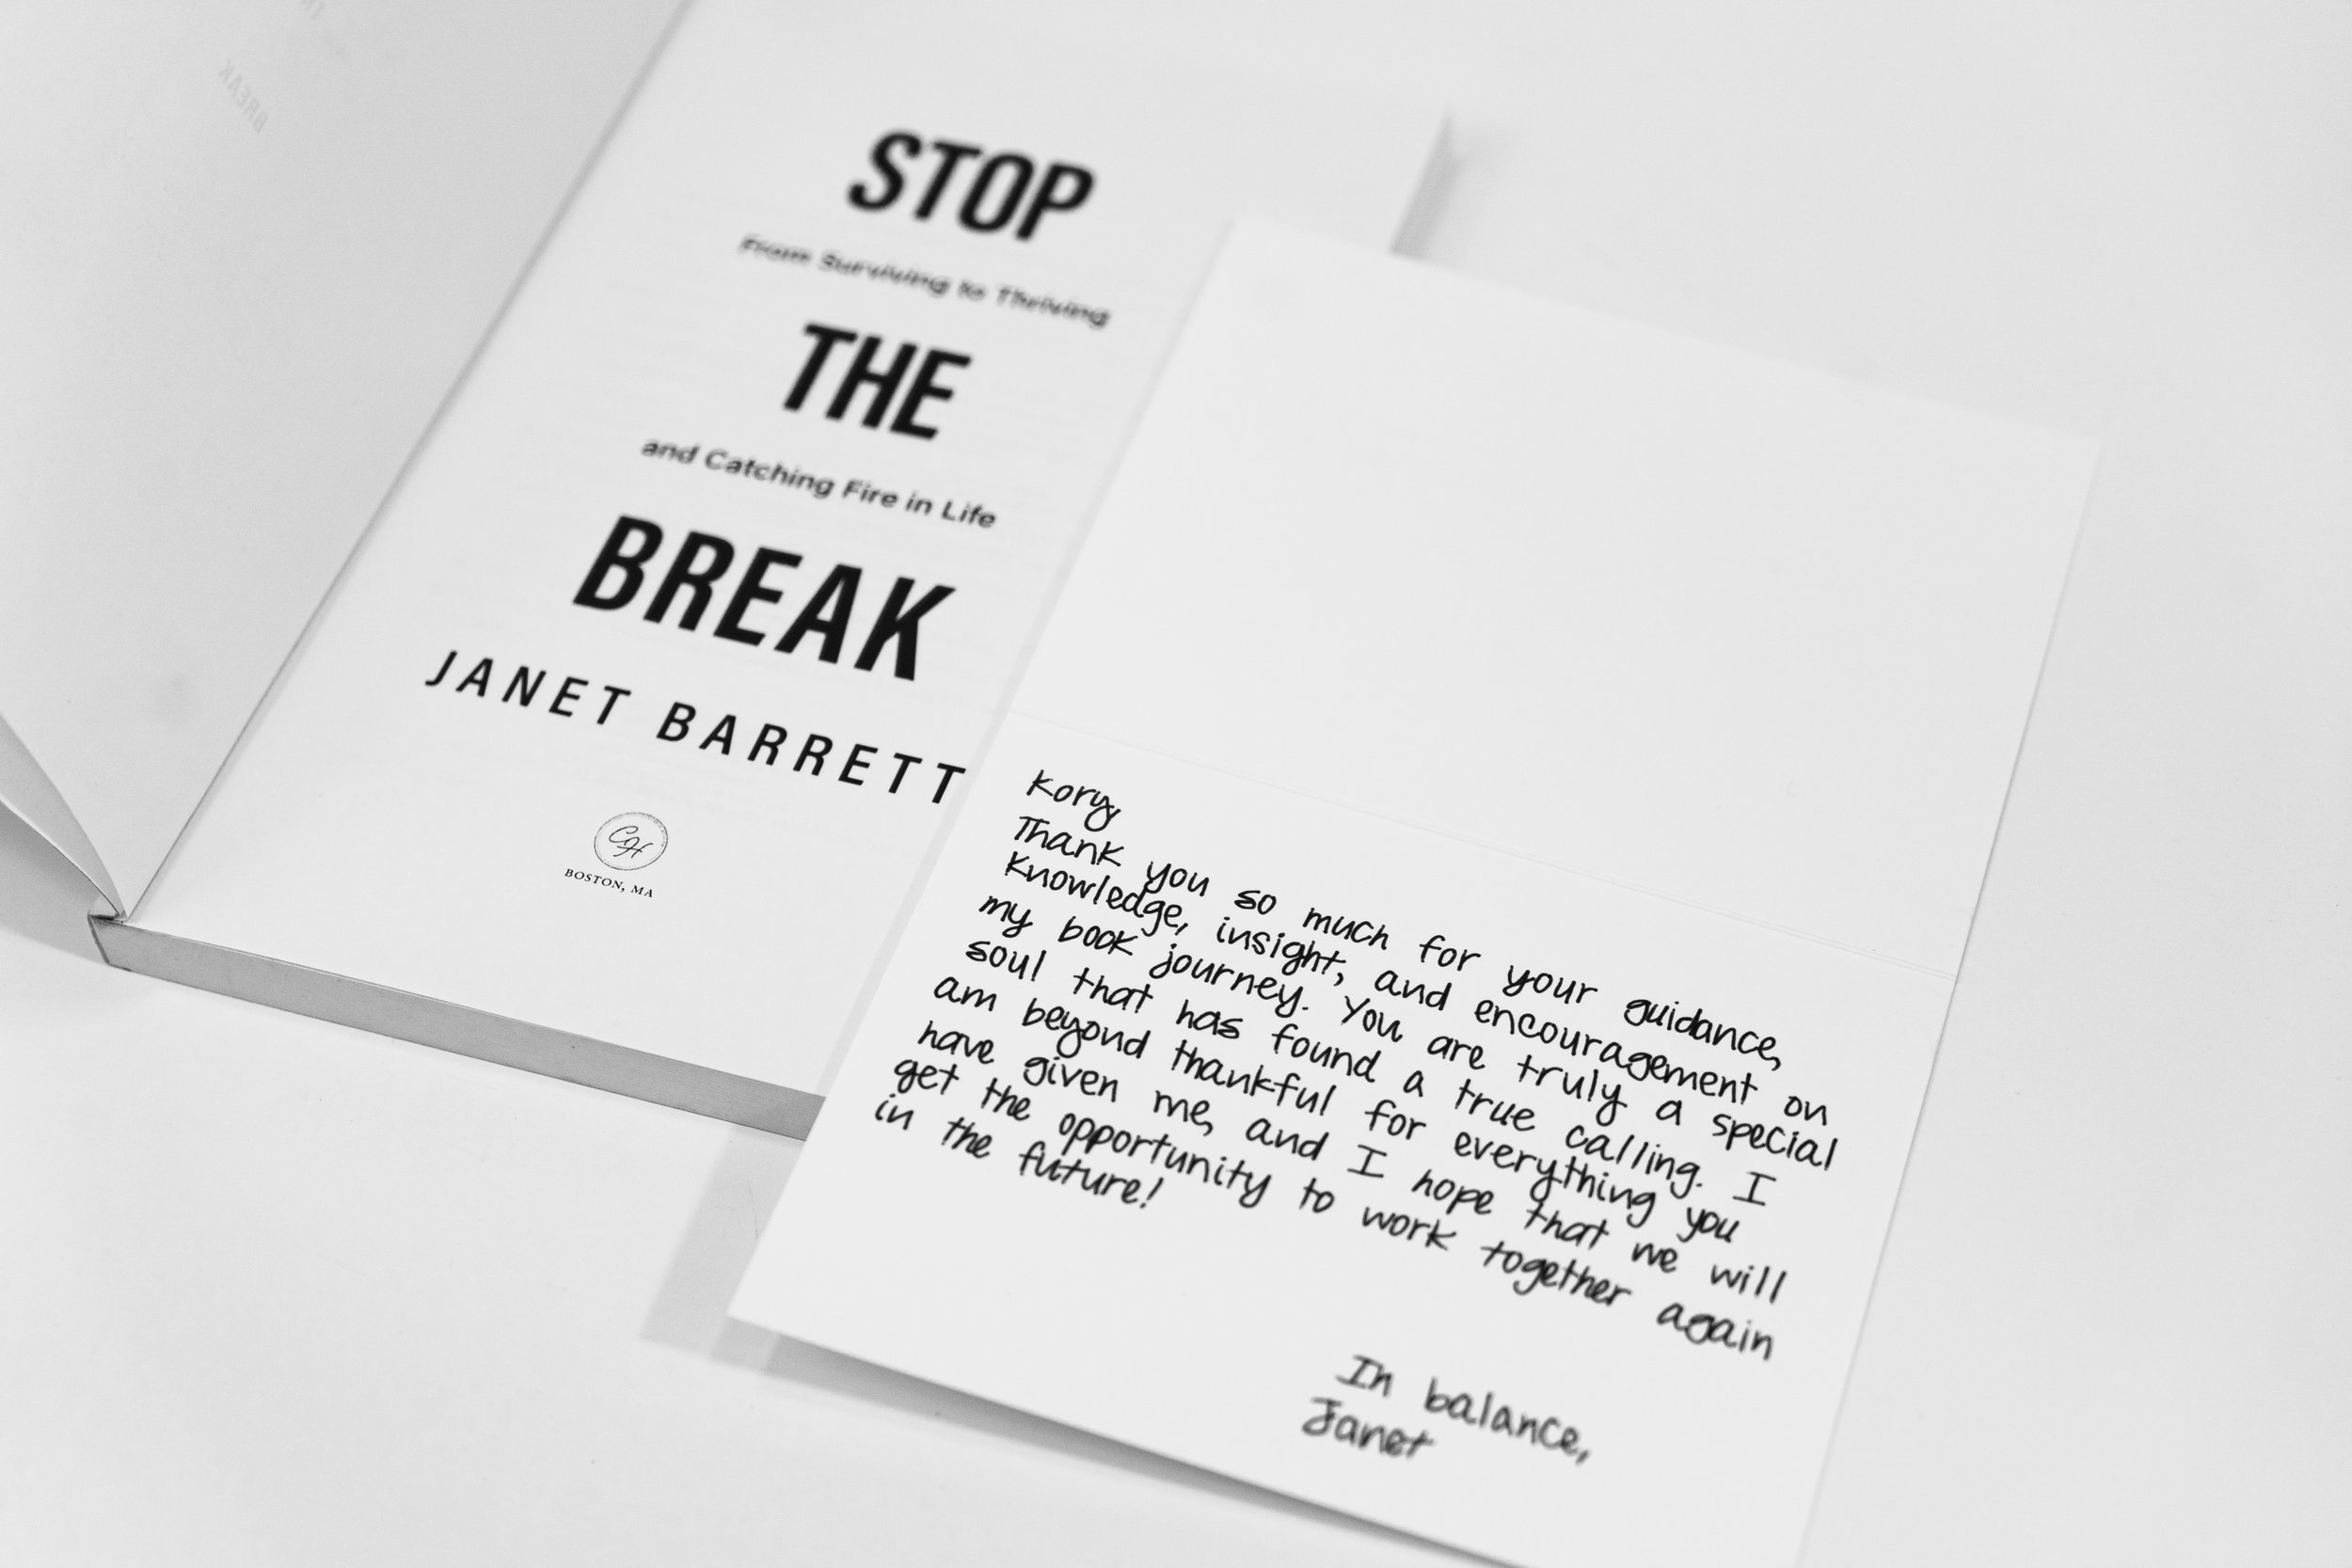 STOP
From Surviving to Thriving
THE
and Catching Fire in Life
BREAK
JANET BARRETT
CH
BOSTON, MA
BREAK
Kory,
Thank you so much for your guidance,
knowledge, insight, and encouragement on
my book journey. You are truly a special
soul that has found a true calling. I
am beyond thankful for everything you
have given me, and I hope that we will
get the opportunity to work together again
in the future!
In balance,
Janet